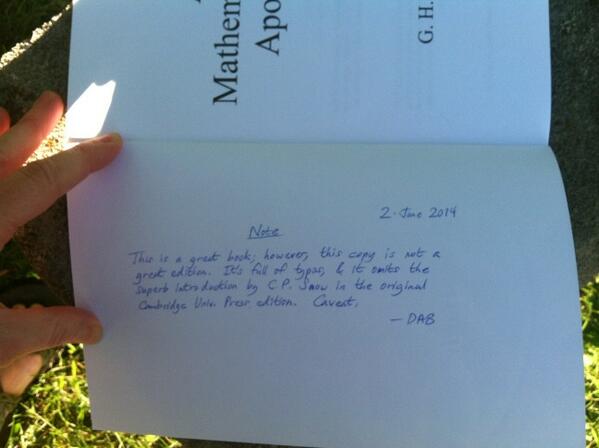 Mathem
Apo
G. H.
2 June 2014
Note
This is a great book; however, this copy is not a
great edition. It's full of typos, & it omits the
superb introduction by C.P. Snow in the original
Cambridge Univ. Press edition. Caveat.
— DAB